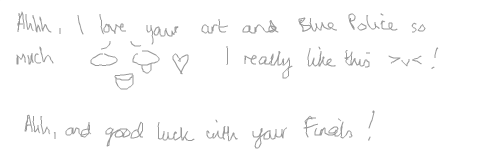 Ahhh, I love your art and Blue Police so
much ♡ I really like this >v< !
Ahh, and good luck with your Finals !